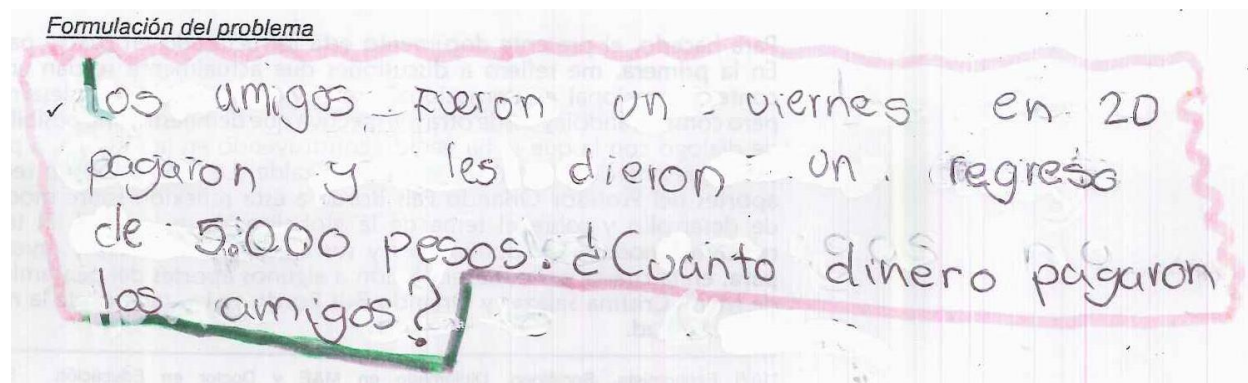 Formulación del problema
Los amigos fueron un viernes en 20
pagaron y les dieron un regreso
de 5.000 pesos ¿cuánto dinero pagaron
los amigos?